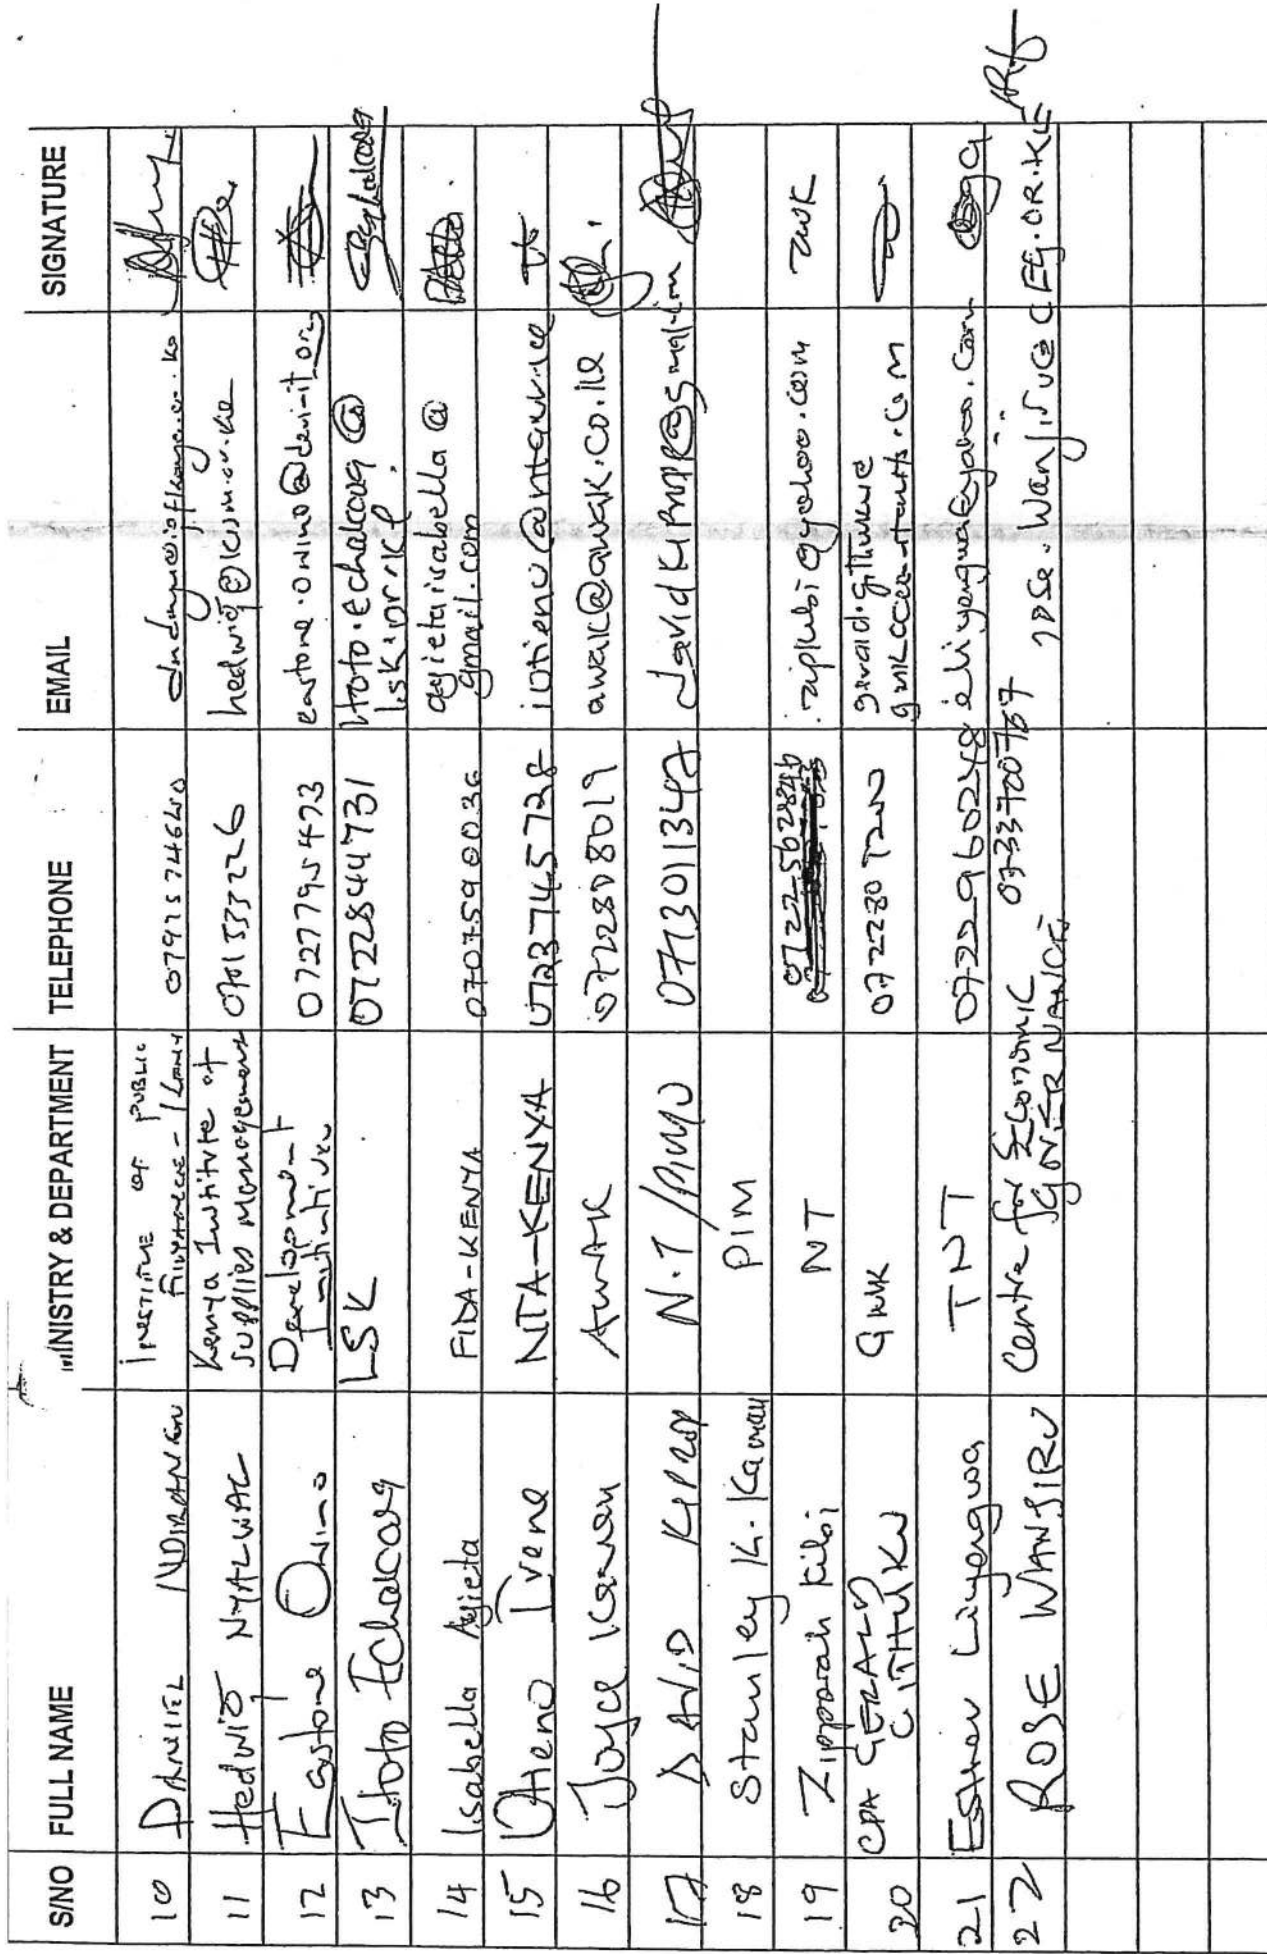 S/NO FULL NAME MINISTRY & DEPARTMENT TELEPHONE EMAIL SIGNATURE
10 DANIEL INSTITUTE OF PUBLIC
FINANCE - KENYA
11 Hedwig NYALWAL Kenya Institute of
Supplies Management 0701533226 hedwig@kism.or.ke
12 Eastone Owino Development
Initiatives 0727795473 eastone.owino@devinit.org
13 Itoto Echakara LSK 0722844731 Itoto.echakara@
lsk.or.ke
14 Isabella Agieta FIDA-KENYA 0707590036 agietaisabella@
gmail.com
15 Otieno Irene NTA-KENYA 0723745728 iotieno@nta.or.ke
16 Joyce AWAK 0722808019 awak@awak.co.ke
17 DAVID KIPROP N.T/PIMU 0713011347
18 Stanley K. Kamau PIM
19 Zipporah Kibi NT 0722-562846 NK
20 CPA GERALD
GITHUKU GWK
21 Esther Liyengwa TNT 0722960248 eliyengwa@yahoo.com
22 ROSE WANJIRU Centre for Economic
GOVERNANCE 0733700767 rose.wanjiru@CEG.OR.KE